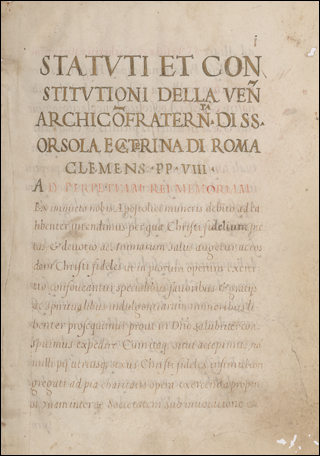 i
STATVTI ET CON
STITVTIONI DELLA VEÑ
ARCHICÕFRATERÑ·TA DI SS·
ORSOLA E CATERINA DI ROMA
CLEMENS·PP·VIII·
AD PERPETVAM REI MEMORIAM
Ex iniuncto nobis Apostolici muneris debito ad ea
libenter intendimus per quæ Christi fidelium pie
tas & devotio ac animarum salus augetur ac eos
dem Christi fideles et in piorum operum exerci
tio confoveantur specialibus favoribus & gratijs
ac spiritualibus indulgentiarum muneribus li
benter prosequimur prout in Dño salubriter con
spicimus expedire. Cum itaq sicut accepimus no
nulli pij utriusq sexus Christi fideles insimul con
gregati ad pia charitatis opera exercenda
unam inter se Societatem sub invocatione